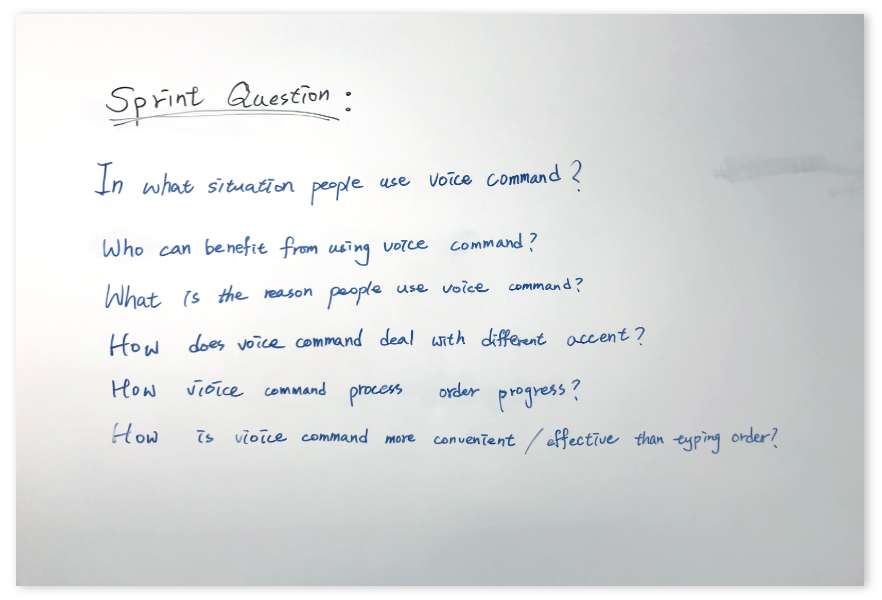 Sprint Question:
In what situation people use voice command?
Who can benefit from using voice command?
What is the reason people use voice command?
How does voice command deal with different accent?
How vioice command process order progress?
How is vioice command more convenient / effective than typing order?